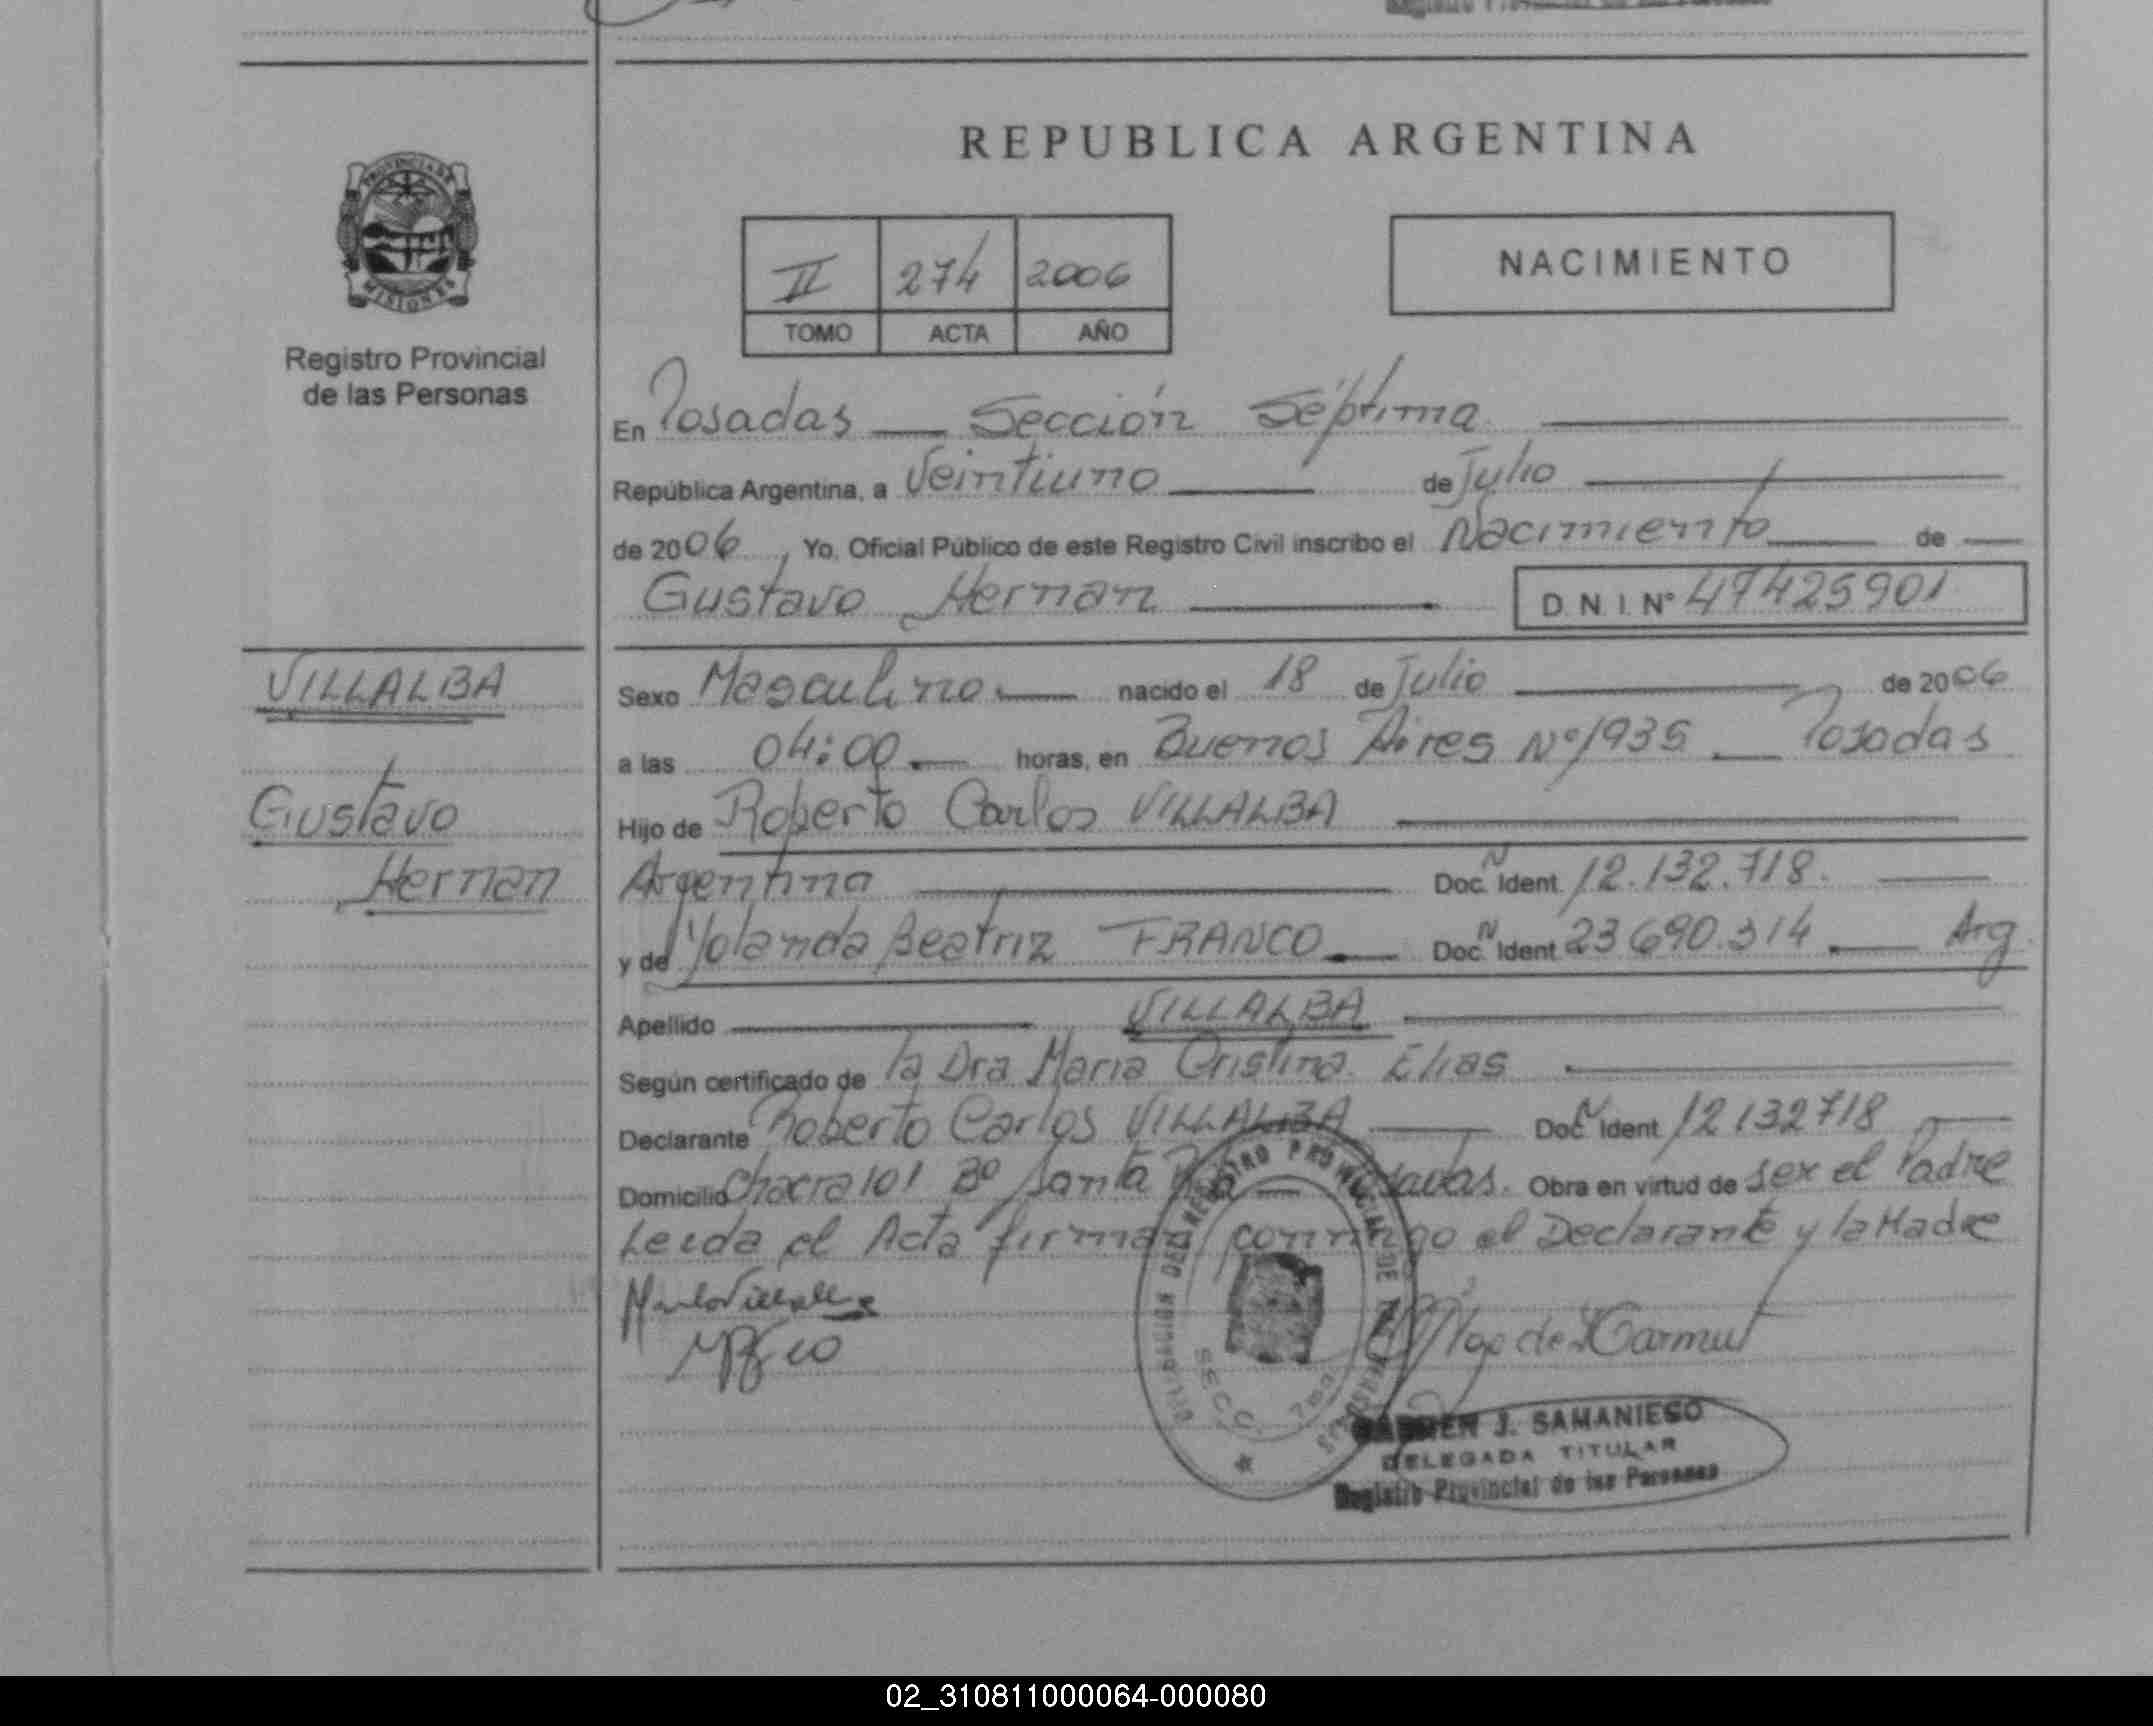 REPUBLICA ARGENTINA
PROVINCIA DE
MISIONES
Registro Provincial
de las Personas
II 274 2006
TOMO ACTA AÑO
NACIMIENTO
En Posadas Sección Séptima
República Argentina, a Veintiuno de Julio
de 2006, Yo, Oficial Público de este Registro Civil inscribo el Nacimiento de
Gustavo Hernan D N I Nº 47425901
VILLALBA
Gustavo
Hernan
Sexo Masculino nacido el 18 de Julio de 2006
a las 04:00 horas, en Buenos Aires Nº 1935 Posadas
Hijo de Roberto Carlos VILLALBA
Argentina Doc. Ident. 12.132.718.
y de Yolanda Beatriz FRANCO Doc. Ident. 23690.314 Arg
Apellido VILLALBA
Según certificado de la Dra Maria Cristina Elias
Declarante Roberto Carlos VILLALBA Doc. Ident. 12132718
Domicilio Chacra 101 Bº Santa Posadas. Obra en virtud de ser el Padre
Leida el Acta firman conmigo el Declarante y la Madre
REGISTRO PROVINCIAL DE
SECC.
CARMEN J. SAMANIEGO
DELEGADA TITULAR
Registro Provincial de las Personas
02_310811000064-000080